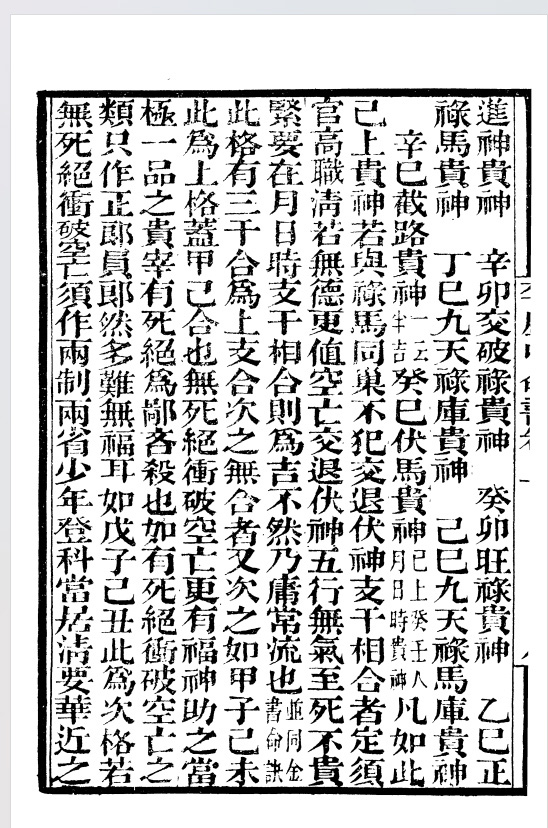 進神貴神　辛卯交破祿貴神　癸卯旺祿貴神　乙巳正
祿馬貴神　丁巳九天祿庫貴神　己巳九天祿馬庫貴神
辛巳截路貴神一云半吉癸巳伏馬貴神已上癸壬人月日時貴神凡如此
已上貴神若與祿馬同巢不犯交退伏神支干相合者定須
官高職清若無德更値空亡交退伏神五行無氣至死不貴
緊要在月日時支干相合則爲吉不然乃庸常流也並同金書命訣
此格有三干合爲上支合次之無合者又次之如甲子己未
此爲上格蓋甲己合也無死絕衝破空亡更有福神助之當
極一品之貴宰有死絕爲鄙吝殺也如有死絕衝破空亡之
類只作正郎員郎然多難無福耳如戊子己丑此爲次格若
無死絕衝破空亡須作兩制兩省少年登科當居清要華近之